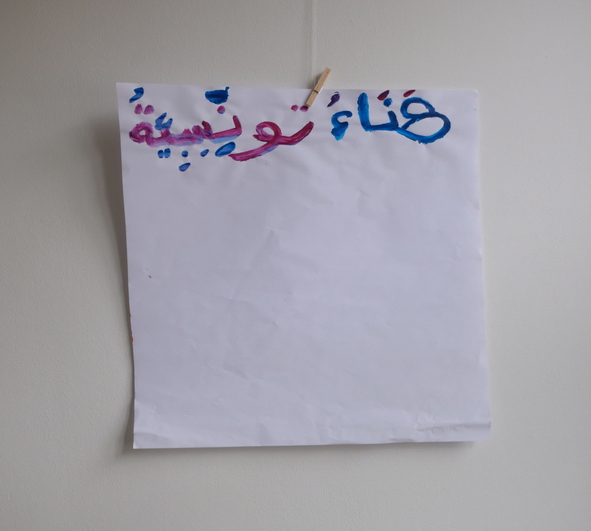 هَنَاءُ تونِسِيَّةٌ